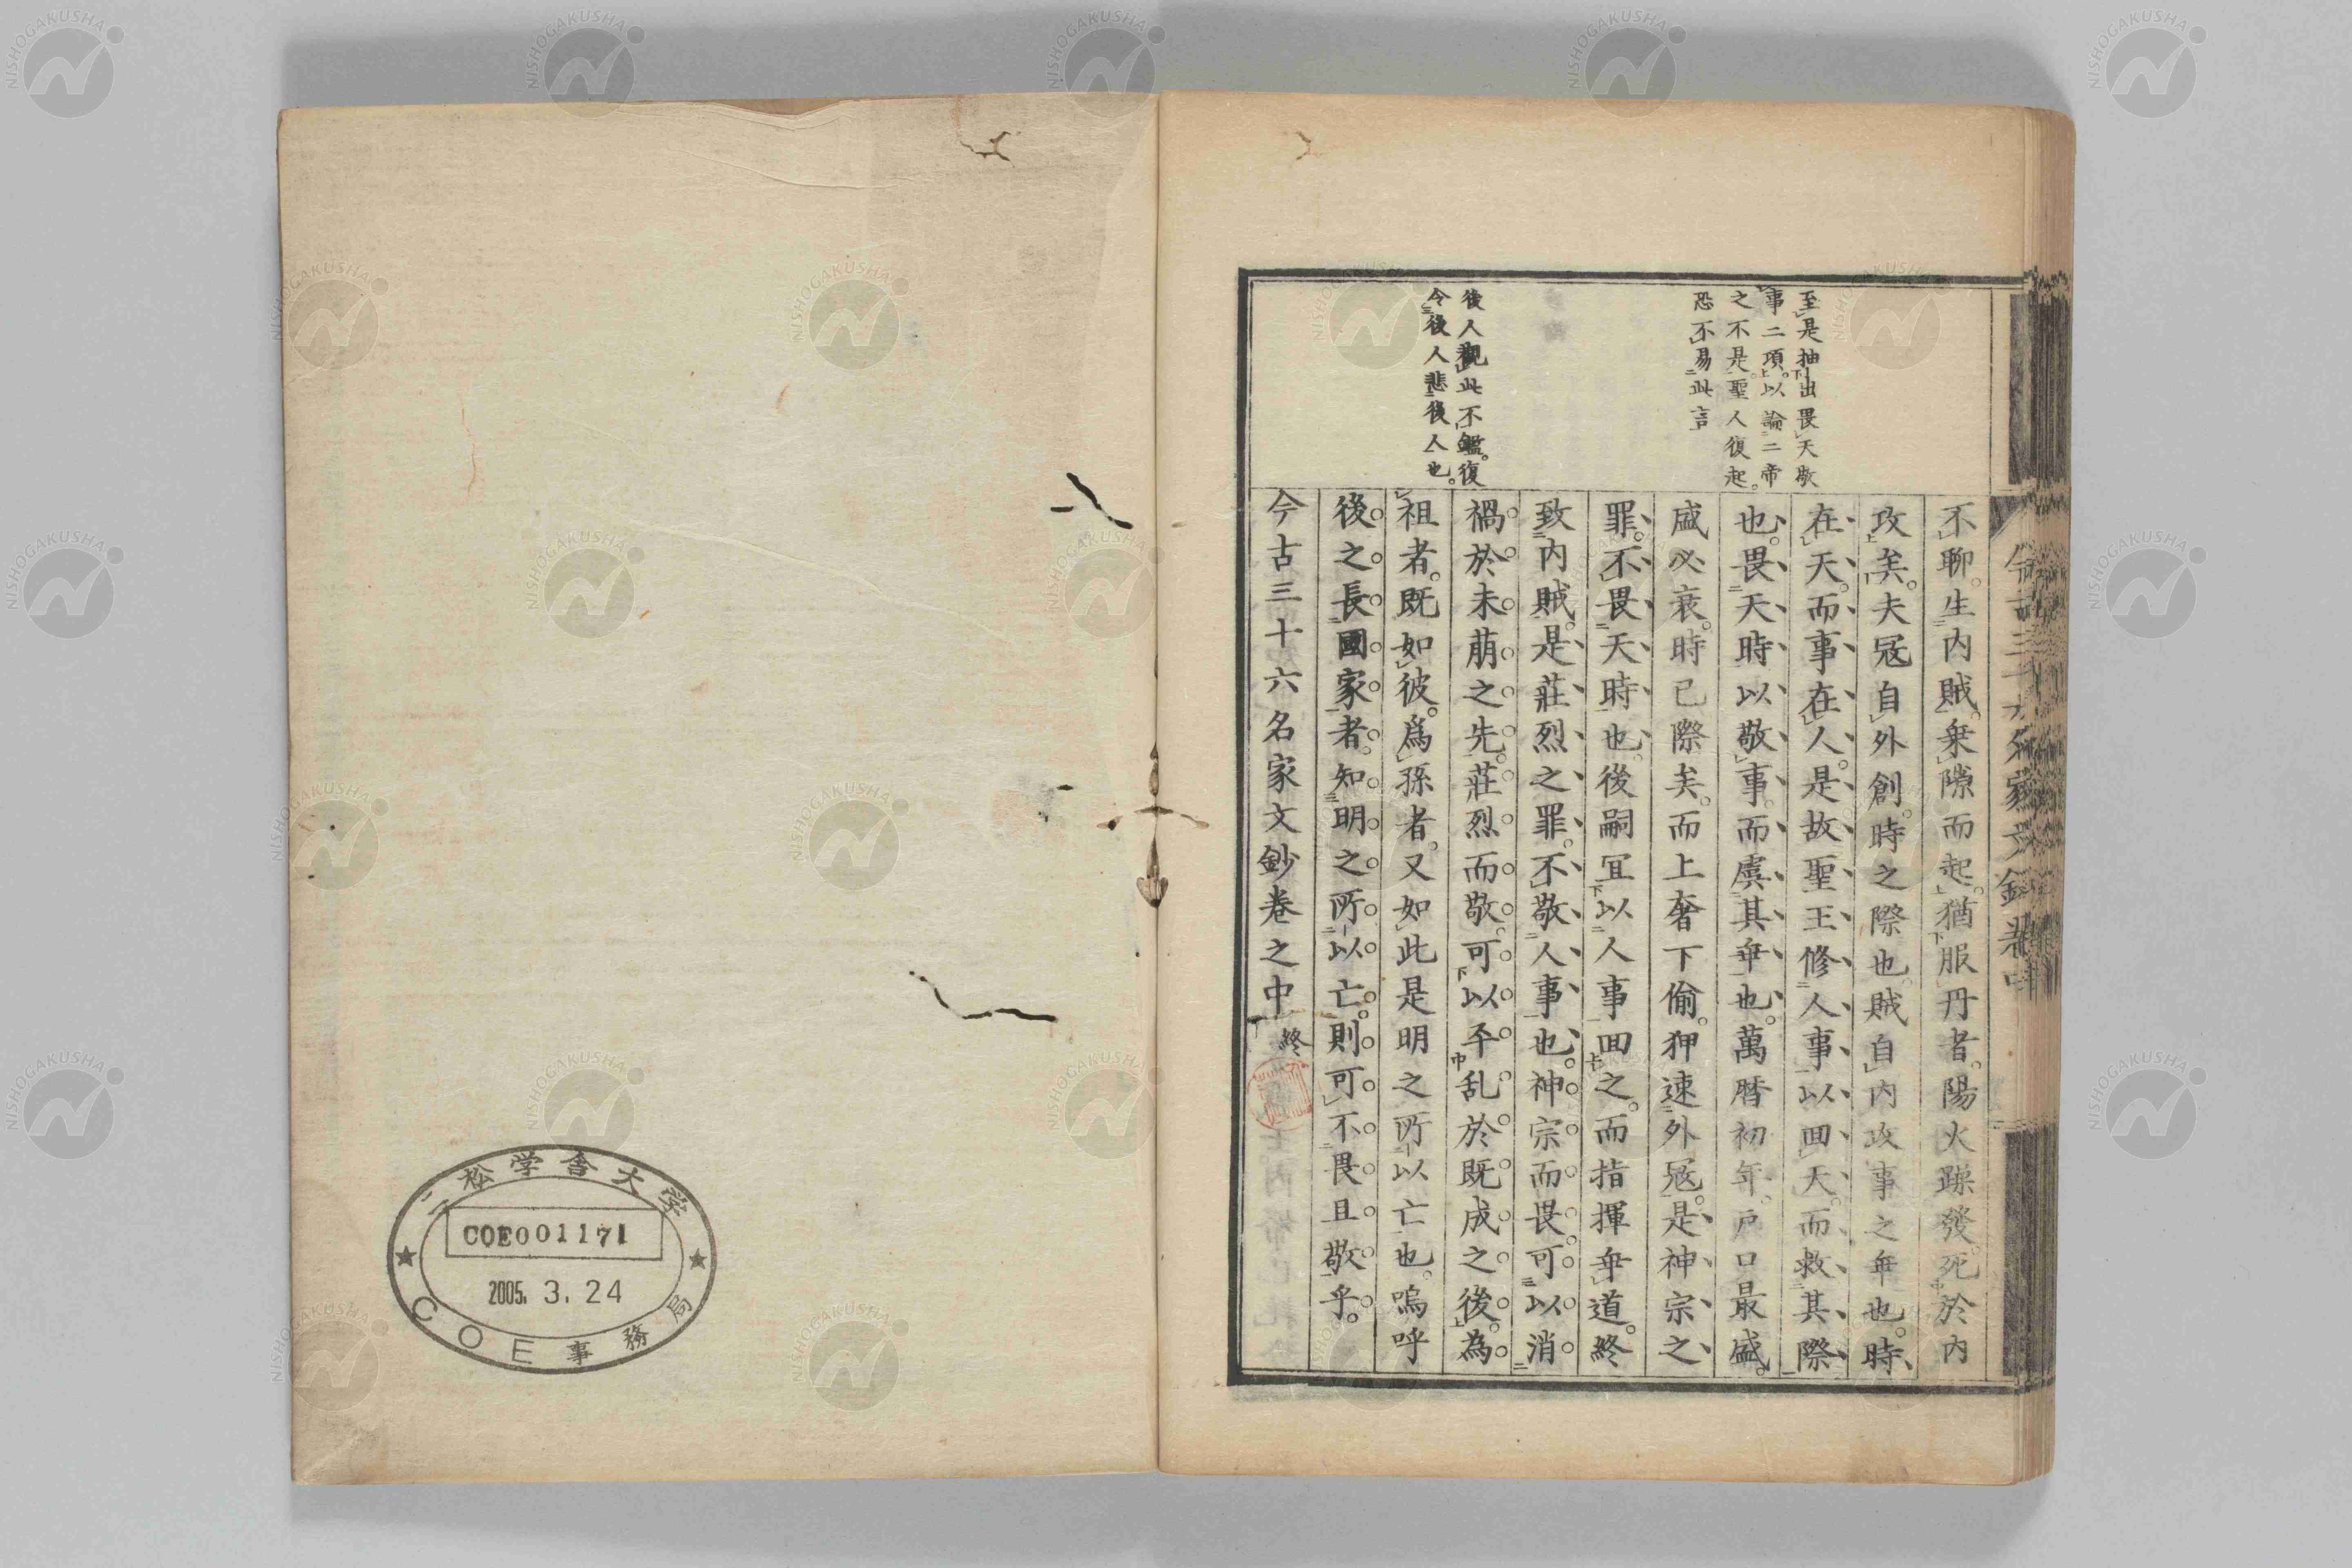 不聊。生内賊。乗隙而起。猶服丹者。陽火踈發。死於内
攻矣。夫冦自外創。時之際也。賊自内攻事之乖也。時
在天。而事在人。是故聖王修人事以回天。而救其際
也。畏天時以敬事。而虞其乖也。萬暦初年。戸口最盛。
盛必衰。時已際矣。而上奢下偷。狎速外冦。是神宗之
罪。不畏天時也。後嗣冝以人事回之。而指揮乖道。終
致内賊。是莊烈之罪。不敬人事也。神宗而畏。可以消
禍於未萠之先。莊烈而敬。可以平乱於既成之後。為
祖者。既如彼。爲孫者。又如此是明之所以亡也。嗚呼
後之長國家者。知明之所以亡。則可不畏且敬乎。
今古三十六名家文鈔卷之中終
至是抽出畏天敬
事二項。以論二帝
之不是。聖人復起。
恐不易此言
後人觀此不鑑。復
令後人悲後人也。
二松学舎大学
COE001171
2005. 3. 24
COE事務局
NISHOGAKUSHA